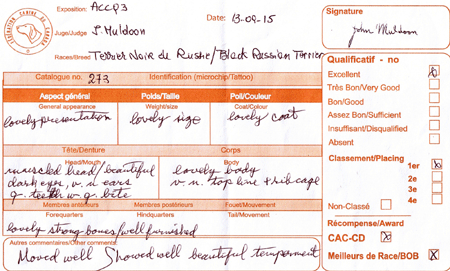 Exposition: ACCQ3
Date: 13-09-15
Juge/Judge J. Muldoon
Races/Breed Terrier Noir de Russie/Black Russian Terrier
Signature
John Muldoon
Catalogue no. 273
Identification (microchip/Tattoo)
Aspect général
General appearance
lovely presentation
Poids/Taille
Weight/size
lovely size
Poil/Couleur
Coat/Colour
lovely coat
Tête/Denture
Head/Mouth
muscled head/beautiful
dark eyes, v.n ears
g. teeth w.g. bite
Corps
Body
lovely body
v n. top line + rib cage
Membres antérieurs
Forequarters
Membres postérieurs
Hindquarters
Fouet/Mouvement
Tail/Movement
lovely strong bones/well furnished
Autres commentaires/Other comments:
Moved well Showed well beautiful temperment
Qualificatif - no
Excellent X
Très Bon/Very Good
Bon/Good
Assez Bon/Sufficient
Insuffisant/Disqualified
Absent
Classement/Placing
1er X
2e
3e
4e
Non-Classé
Récompense/Award
CAC-CD X
Meilleurs de Race/BOB X